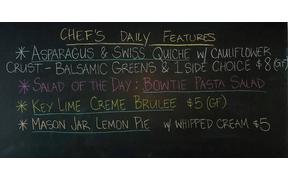 CHEF'S DAILY FEATURES
* ASPARAGUS & SWISS QUICHE W/ CAULIFLOWER
CRUST - BALSAMIC GREENS & 1 SIDE CHOICE $8 (GF)
* SALAD OF THE DAY: BOWTIE PASTA SALAD
* KEY LIME CREME BRULEE $5 (GF)
* MASON JAR LEMON PIE W/ WHIPPED CREAM $5